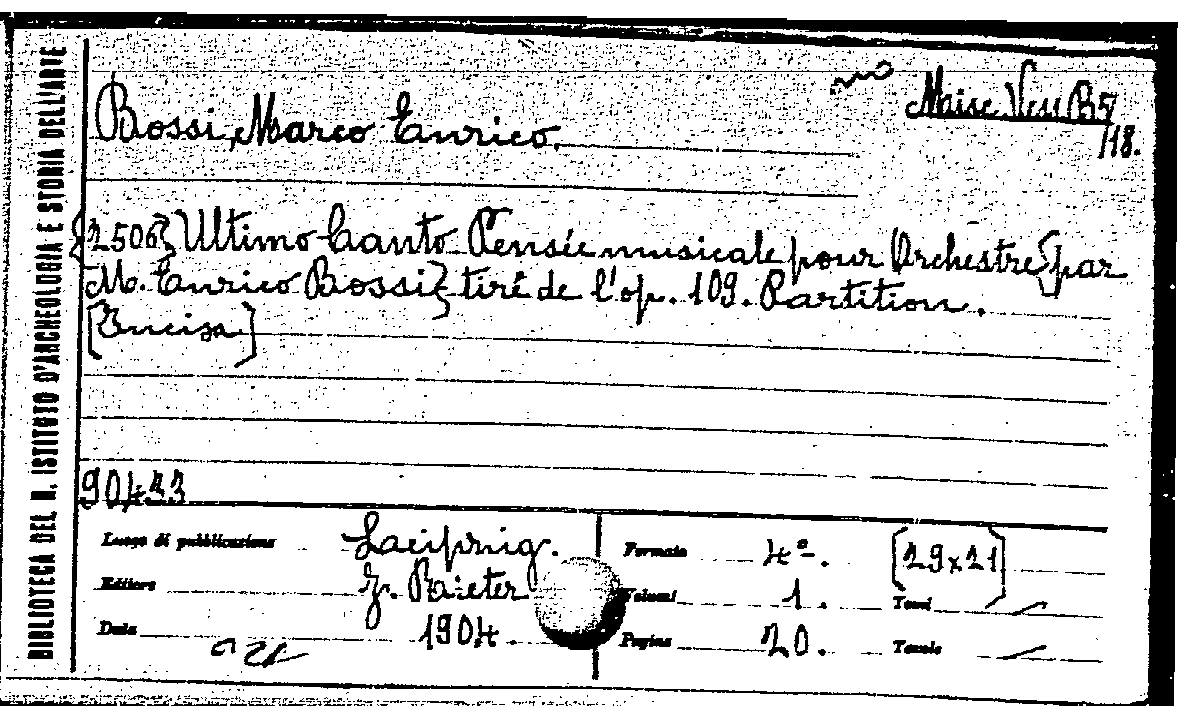 BIBLIOTECA DEL R. ISTITUTO D'ARCHEOLOGIA E STORIA DELL'ARTE
Bossi, Marco Enrico.
Misc. Vess. B5
/18.
{2506} Ultimo Canto Pensée musicale pour Orchestre {par
M. Enrico Bossi} tiré de l'op. 109. Partition.
[Incisa]
90433
Luogo di pubblicazione Laeipnig. Formato 4º. [29x21]
Editore J. Raieter Volumi 1. Tomi —
Data 1904. Pagine 20. Tavole —